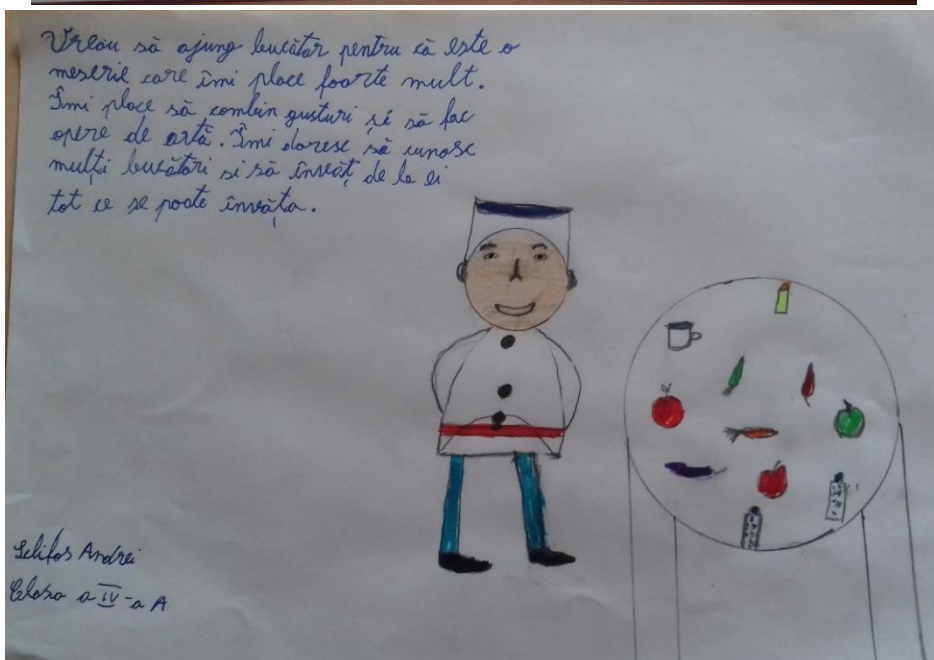 Vreau să ajung bucătar pentru că este o
meserie care îmi place foarte mult.
Îmi place să combin gusturi și să fac
opere de artă. Îmi doresc să cunosc
mulți bucătari si să învăț de la ei
tot ce se poate învăța.
Andrei
Clasa a IV-a A